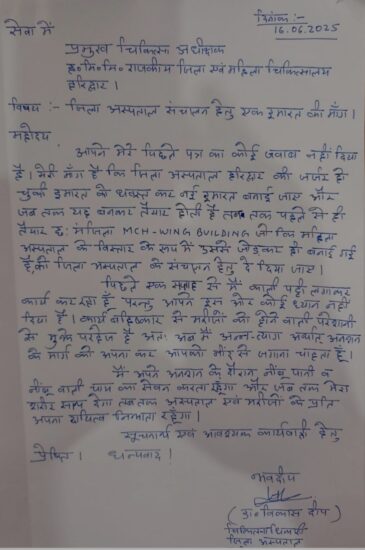 दिनांक :-
16.06.2025
सेवा में
प्रमुख चिकित्सा अधीक्षक
ह० मि० मि० राजकीय जिला एवं महिला चिकित्सालय
हरिद्वार।
विषय :- जिला अस्पताल संचालन हेतु एक इमारत की माँग।
महोदय
आपने मेरे पिछले पत्र का कोई जवाब नहीं दिया
है। मेरी माँग है कि जिला अस्पताल हरिद्वार की जर्जर हो
चुकी इमारत को ध्वस्त कर नई इमारत बनाई जाए और
जब तक यह बनकर तैयार होती है तब तक पहले से ही
तैयार छ: मंजिला MCH-WING BUILDING जो कि महिला
अस्पताल के विस्तार के रूप में उससे जोड़कर ही बनाई गई
है को जिला अस्पताल के संचालन हेतु दे दिया जाए।
पिछले एक सप्ताह से मैं काली पट्टी लगाकर
कार्य कर रहा हूँ परन्तु आपने इस ओर कोई ध्यान नहीं
दिया है। कार्य बहिष्कार से मरीजों को होने वाली परेशानी
से मुझे परहेज है अतः अब मैं अन्न-त्याग अर्थात अनशन
के मार्ग को अपना कर आपको नींद से जगाना चाहता हूँ।
मैं अपने अनशन के दौरान नींबू पानी व
नींबू वाली चाय का सेवन करता रहूँगा और जब तक मेरा
शरीर साथ देगा तब तक अस्पताल एवं मरीजों के प्रति
अपना दायित्व निभाता रहूँगा।
सूचनार्थ एवं आवश्यक कार्यवाही हेतु
प्रेषित। धन्यवाद।
भवदीय
(डा० विकास दीप)
चिकित्साधिकारी
जिला अस्पताल